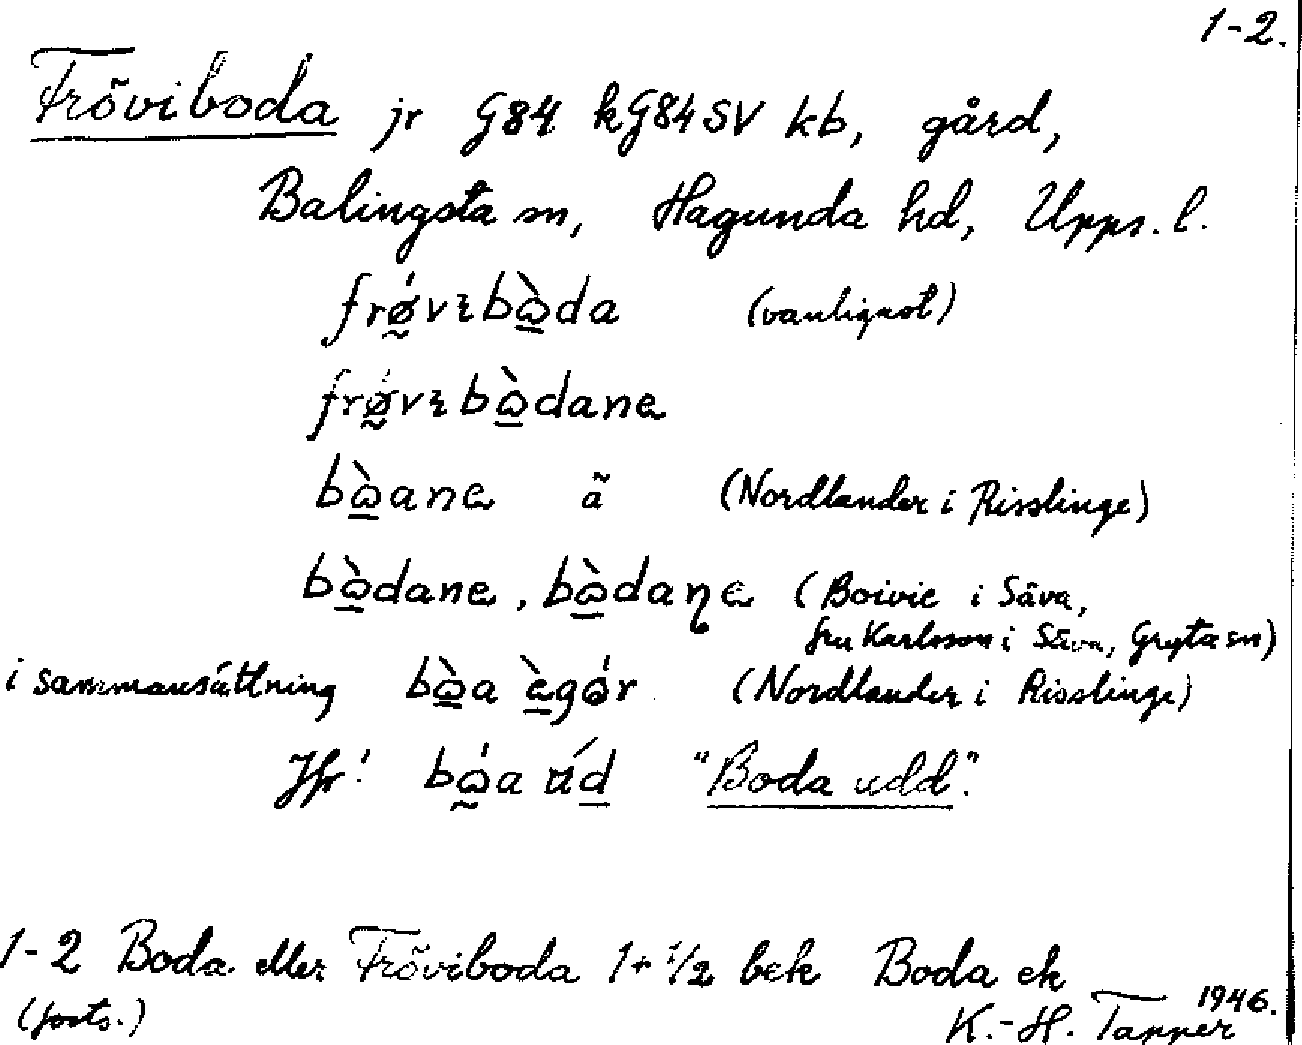 1-2.
Fröviboda jr G84 kG84SV kb, gård,
Balingsta sn, Hagunda hd, Upps. l.
(vanligast)
bò̱ane ã (Nordlander i Risslinge)
bò̱dane, (Boivie i Säva,
fru Karlsson i Säva, Gryta sn)
i sammansättning (Nordlander i Risslinge)
Jfr! "Boda udd".
1-2 Boda eller Fröviboda 1+1/2 bek Boda ek
(forts.) K.-H. Tapper 1946.